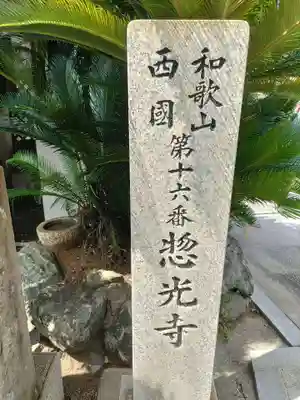 和歌山
西國
第十六番惣光寺